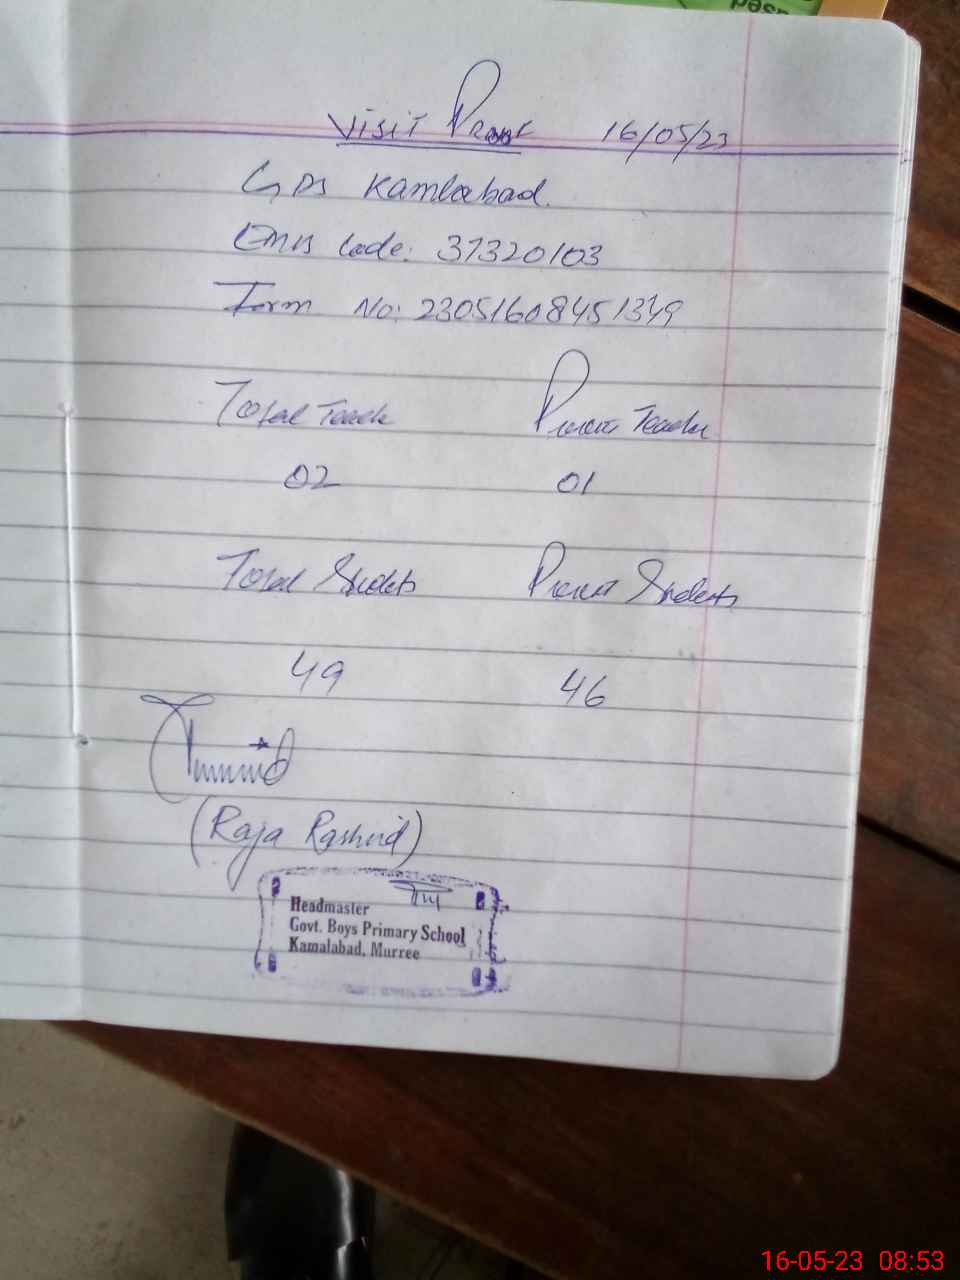 Visit Proof 16/05/23
GPS Kamlabad.
EMIS Code: 37320103
Form No: 230516084511349
Total Teach Present Teacher
02 01
Total Students Present Students
49 46
(Raja Rashid)
Headmaster
Govt. Boys Primary School
Kamalabad, Murree
16-05-23 08:53